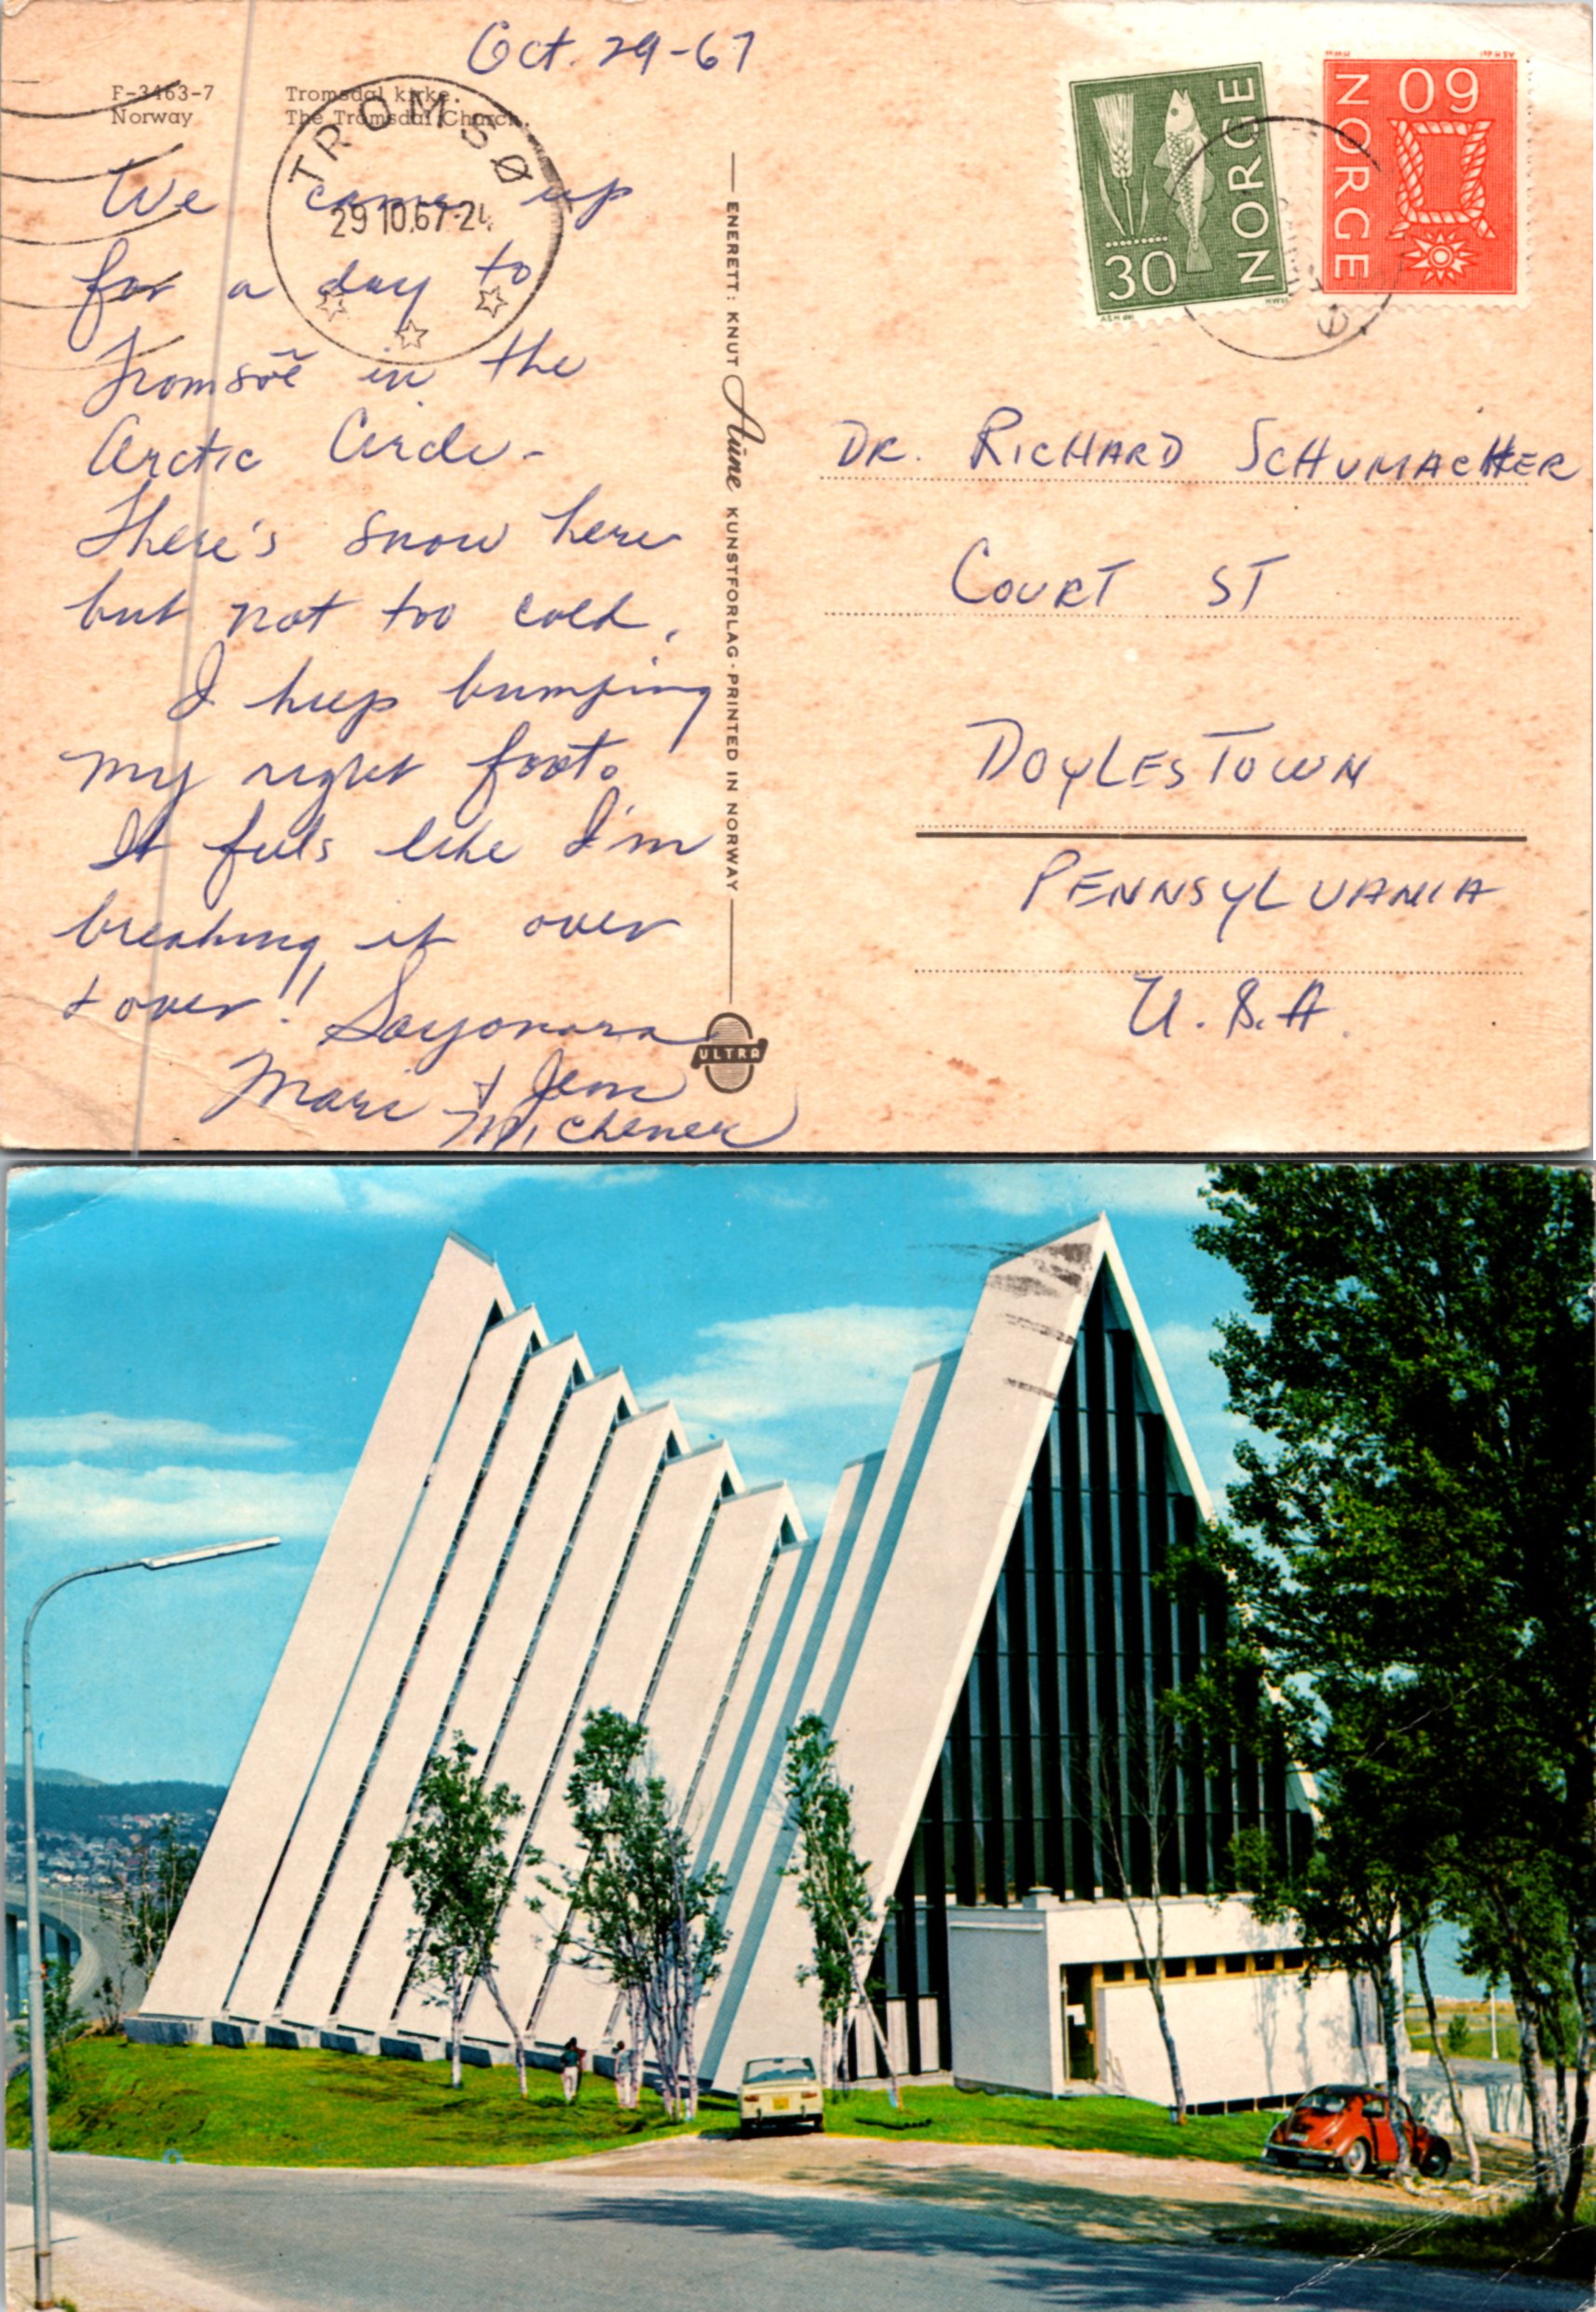 Oct. 29-67
F-3463-7
Norway
Tromsdal kirke.
The Tromsdal Church.
TROMSØ
29 10.67-24
We came up
for a day to
Tromsöe in the
Arctic Circle-
There's snow here
but not too cold.
I keep bumping
my right foot.
It feels like I'm
breaking it over
+ over!! Sayonara
Mari + Jim
Michener
ENERETT: KNUT Aune KUNSTFORLAG · PRINTED IN NORWAY
ULTRA
30 NORGE
60 NORGE
DR. RICHARD SCHUMACHER
COURT ST
DOYLESTOWN
PENNSYLVANIA
U.S.A.